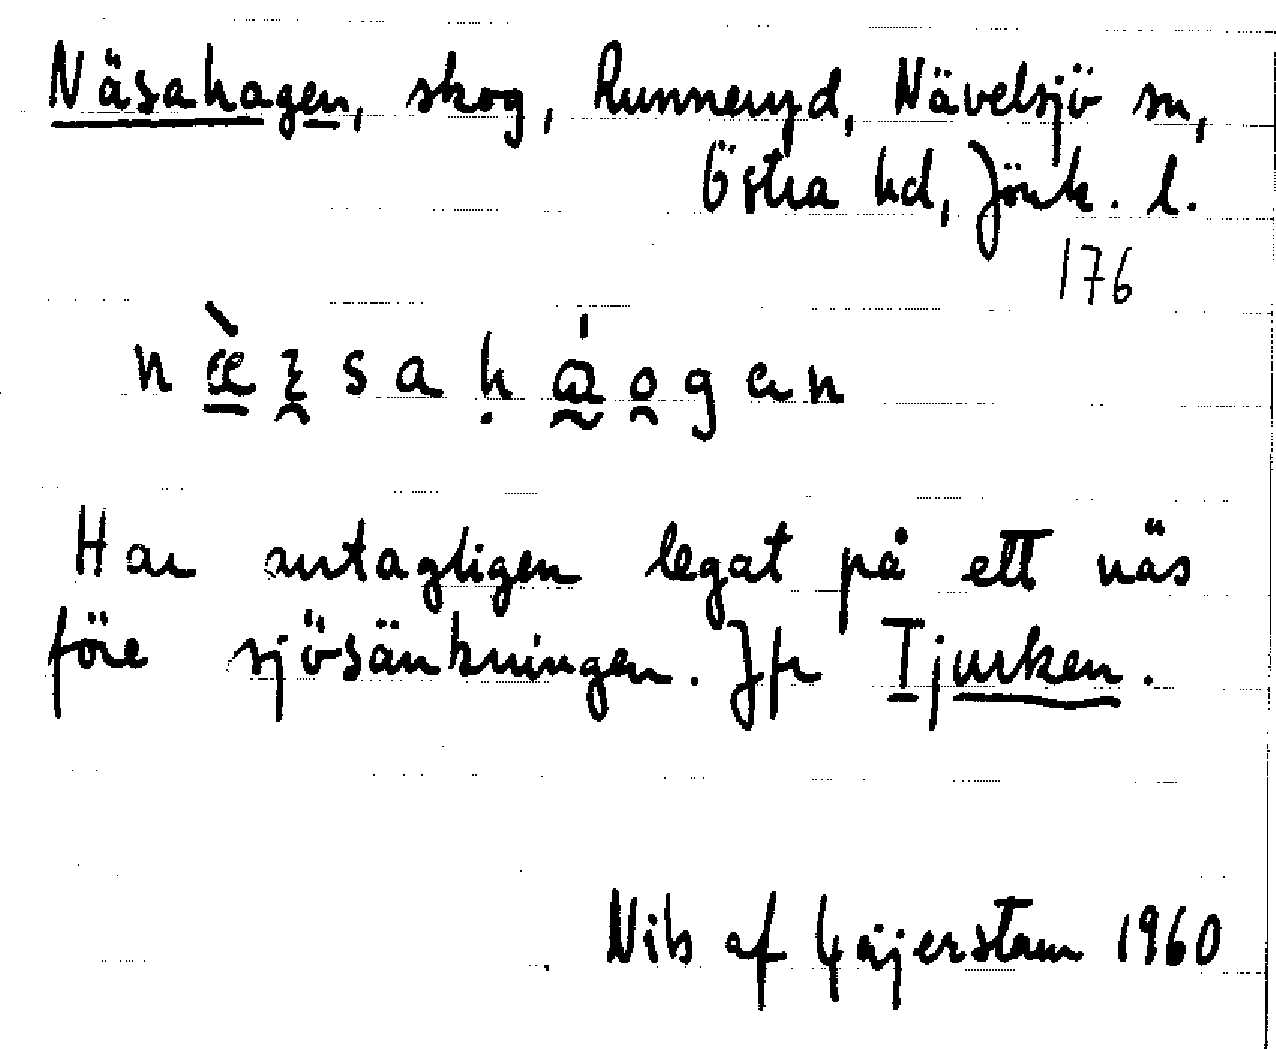 Näsahagen, skog, Runneryd, Nävelsjö sn,
Östra hd, Jönk. l.
176
Har antagligen legat på ett näs
före sjösänkningen. Jfr Tjurken.
Nils af Gäjerstam 1960